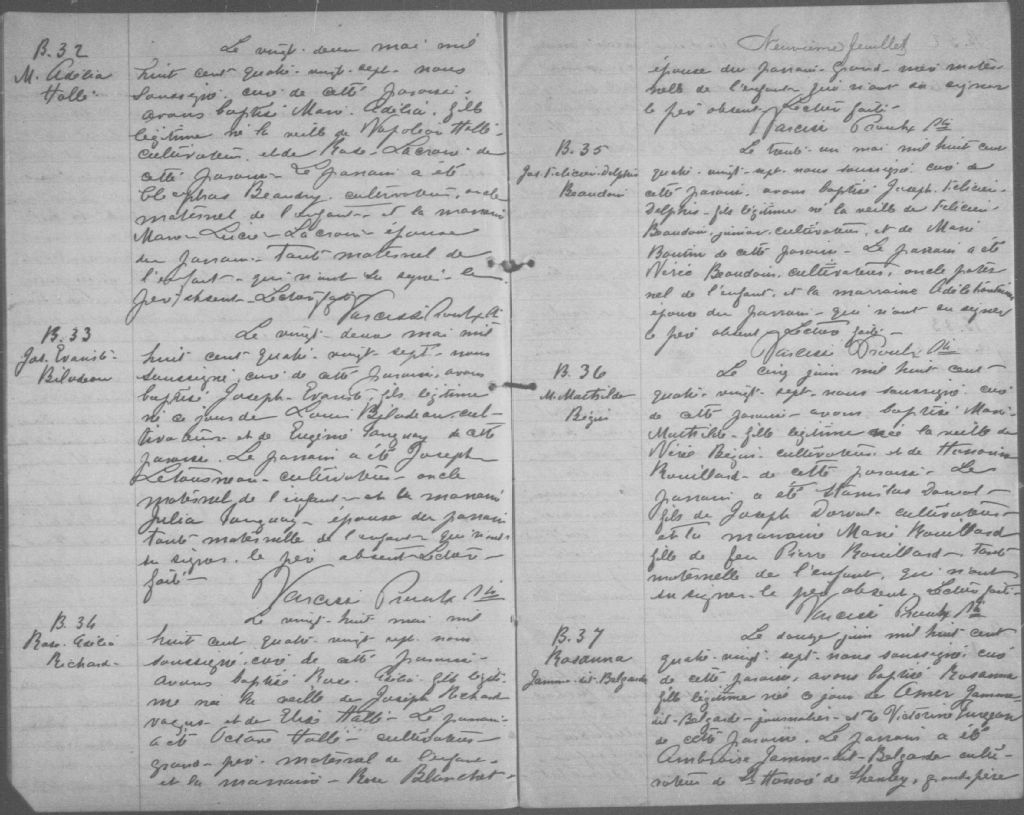 B. 32
M. Adélia
Hallé
Le vingt-deux mai mil
huit cent quatre-vingt-sept, nous
soussigné, curé de cette paroisse,
avons baptisé Marie Adélia, fille
légitime née la veille de Napoléon Hallé,
cultivateur, et de Rose Lacroix de
cette paroisse. Le parrain a été
Cléophas Beaudry, cultivateur, oncle
maternel de l'enfant, et la marraine
Marie-Lucie Lacroix épouse
du parrain, tante maternel de
l'enfant, qui n'ont su signer, le
père absent. Lecture faite
Narcisse Proulx Ptre
B. 33
Jos. Evariste
Bilodeau
Le vingt-deux mai mil
huit cent quatre-vingt-sept, nous
soussigné, curé de cette paroisse, avons
baptisé Joseph-Evariste, fils légitime
né ce jour de Louis Bilodeau, cul-
tivateur et de Eugénie Tanguay de cette
paroisse. Le parrain a été Joseph
Letourneau, cultivateur, oncle
maternel de l'enfant, et la marraine
Julia Tanguay, épouse du parrain
tante maternelle de l'enfant, qui n'ont
su signer, le père absent. Lecture
faite
Narcisse Proulx Ptre
B. 34
Rose-Adélia
Richard
Le vingt-huit mai mil
huit cent quatre-vingt-sept, nous
soussigné, curé de cette paroisse,
avons baptisé Rose fille légiti-
me née la veille de Joseph Richard
et de Elise Hallé. Le parrain
a été Octave Hallé, cultivateur,
grand-père maternel de l'enfant
et la marraine Rose Blanchet
Neuvième feuillet
épouse du parrain, grand-mère mater-
nelle de l'enfant, qui n'ont su signer
le père absent. Lecture faite
Narcisse Proulx Ptre
B. 35
Jos. Félicien-Delphis
Beaudoin
Le trente-un mai mil huit cent
quatre-vingt-sept, nous soussigné curé de
cette paroisse, avons baptisé Joseph-Félicien-
Delphis, fils légitime né la veille de Félicien
Beaudoin, junior, cultivateur, et de Marie
Boutin de cette paroisse. Le parrain a été
Nérée Beaudoin, cultivateur, oncle pater-
nel de l'enfant, et la marraine Adèle
épouse du parrain, qui n'ont su signer
le père absent. Lecture faite
Narcisse Proulx Ptre
B. 36
M. Mathilde
Bégin
Le cinq juin mil huit cent
quatre-vingt-sept, nous soussigné curé
de cette paroisse, avons baptisé Marie-
Mathilde, fille légitime née la veille de
Nérée Bégin cultivateur, et de Honorine
Rouillard de cette paroisse. Le
parrain a été Stanislas Dorval
fils de Joseph Dorval, cultivateur,
et la marraine Marie Rouillard
fille de feu Pierre Rouillard, tante
maternelle de l'enfant, qui n'ont
su signer, le père absent. Lecture faite
Narcisse Proulx Ptre
B. 37
Rosanna
Jamme-dit-Belgarde
Le douze juin mil huit cent
quatre-vingt-sept, nous soussigné curé
de cette paroisse, avons baptisé Rosanna
fille légitime née ce jour de Omer Jamme-
dit-Belgarde, journalier, et de Victorine
de cette paroisse. Le parrain a été
Ambroise Jamme-dit-Belgarde culti-
vateur de St Honoré de Shenley, grand-père